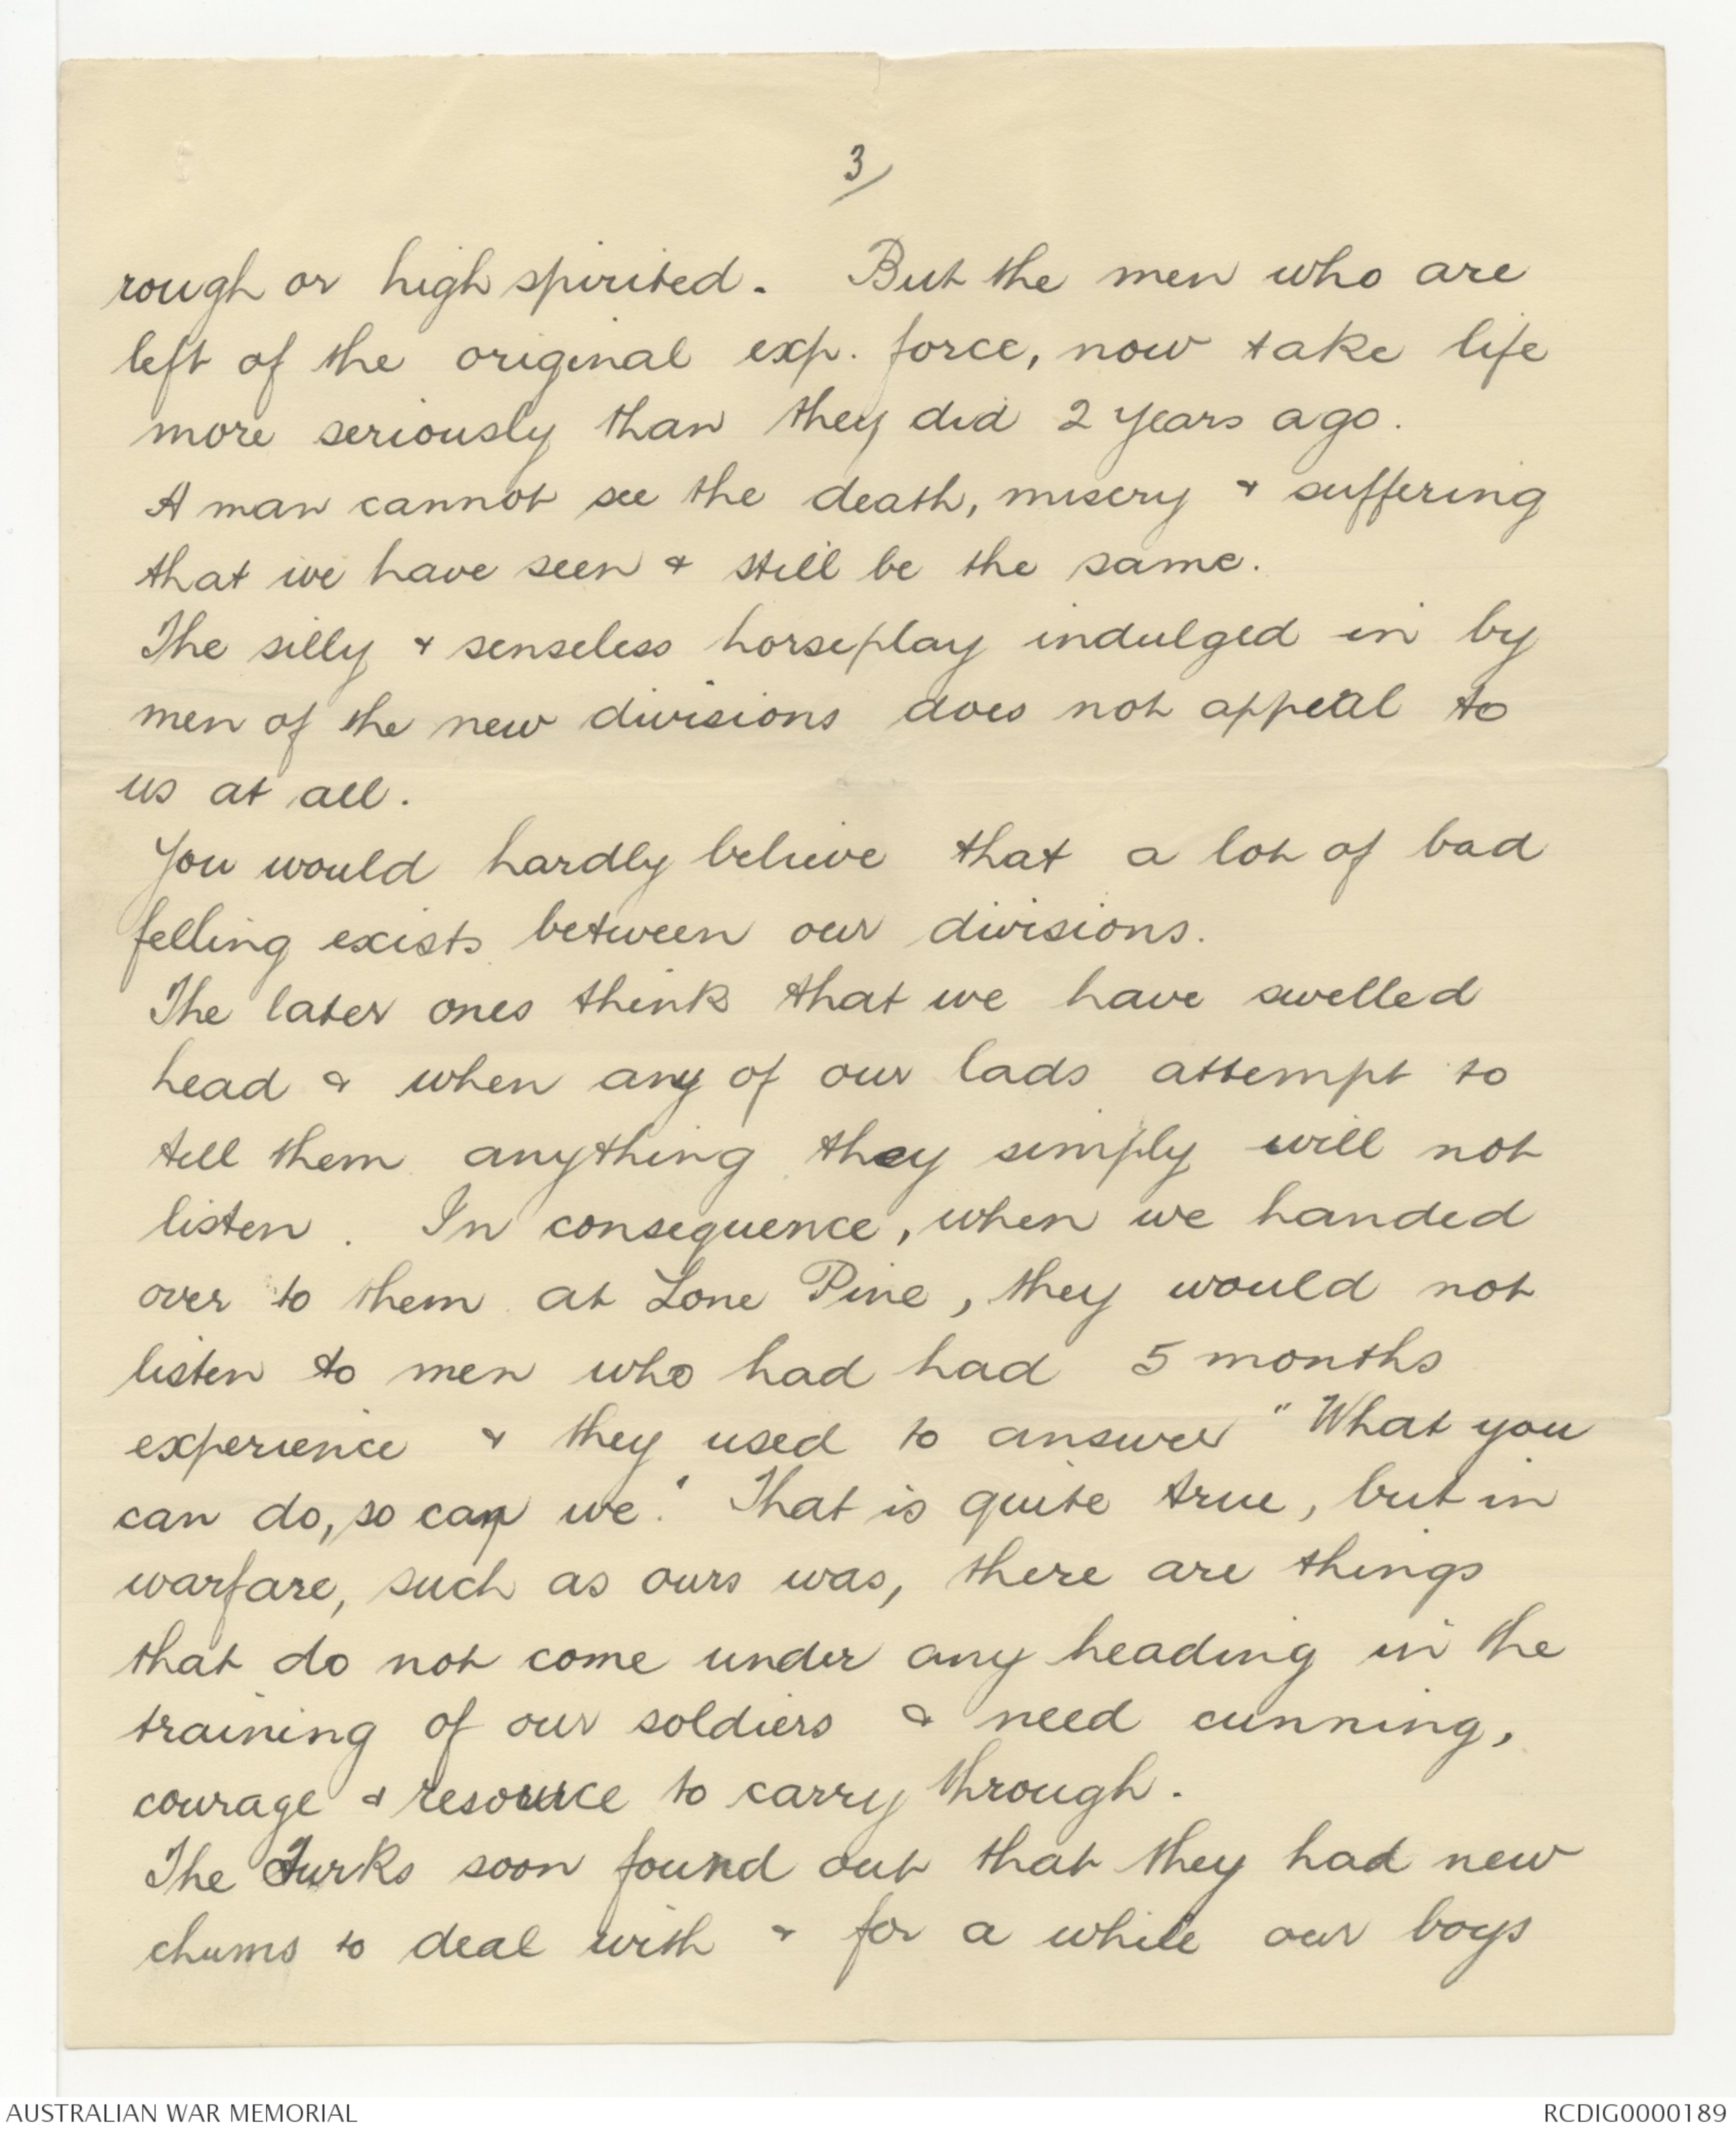 3/
rough or high spirited. But the men who are
left of the original exp. force, now take life
more seriously than they did 2 years ago.
A man cannot see the death, misery & suffering
that we have seen & still be the same.
The silly & senseless horseplay indulged in by
men of the new divisions does not appeal to
us at all.
You would hardly believe that a lot of bad
felling exists between our divisions.
The later ones think that we have swelled
head & when any of our lads attempt to
tell them anything they simply will not
listen. In consequence, when we handed
over to them at Lone Pine, they would not
listen to men who had had 5 months
experience & they used to answer "What you
can do, so can we." That is quite true, but in
warfare, such as ours was, there are things
that do not come under any heading in the
training of our soldiers & need cunning,
courage & resource to carry through.
The Turks soon found out that they had new
chums to deal with & for a while our boys
AUSTRALIAN WAR MEMORIAL
RCDIG0000189